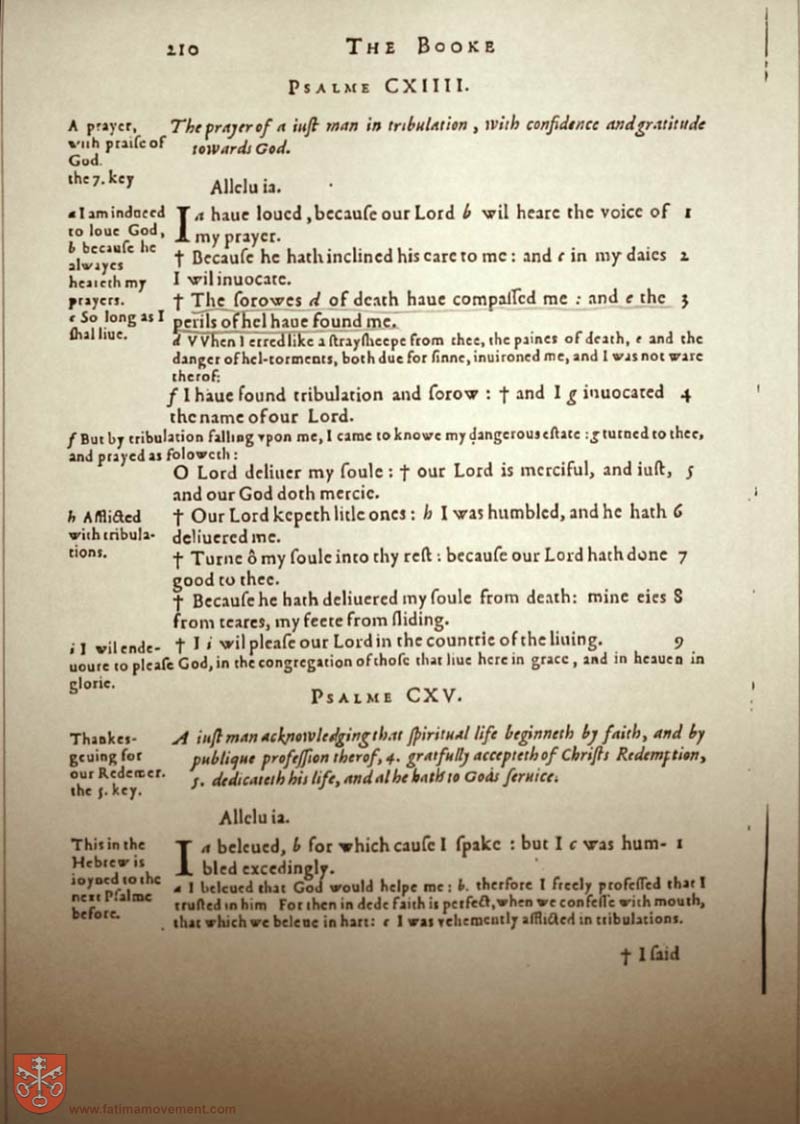 210 THE BOOKE
PSALME CXIIII.
A prayer,
with praiſe of
God.
the 7. key
The prayer of a iuſt man in tribulation, with confidence and gratitude
towards God.
Allelu ia.
a I am induced
to loue God,
b becauſe he
alwayes
heareth my
prayers.
c So long as I
ſhal liue.
I a haue loued, becauſe our Lord b wil heare the voice of 1
my prayer.
† Becauſe he hath inclined his eare to me: and c in my daies 2
I wil inuocate.
† The ſorowes d of death haue compaſſed me : and e the 3
perils of hel haue found me.
d VVhen I erred like a ſtrayſheepe from thee, the paines of death, e and the
danger of hel-torments, both due for ſinne, inuironed me, and I was not ware
therof:
f I haue found tribulation and ſorow : † and I g inuocated 4
the name of our Lord.
f But by tribulation falling vpon me, I came to knowe my dangerous eſtate : g turned to thee,
and prayed as foloweth :
O Lord deliuer my ſoule : † our Lord is merciful, and iuſt, 5
and our God doth mercie.
h Afflicted
with tribula-
tions.
† Our Lord kepeth litle ones : h I was humbled, and he hath 6
deliuered me.
† Turne ô my ſoule into thy reſt : becauſe our Lord hath done 7
good to thee.
† Becauſe he hath deliuered my ſoule from death: mine eies 8
from teares, my feete from ſliding.
† I i wil pleaſe our Lord in the countrie of the liuing. 9
i I wil ende-
uoure to pleaſe God, in the congregation of thoſe that liue here in grace, and in heauen in
glorie.
PSALME CXV.
Thankes-
geuing for
our Redemer.
the 5. key.
A iuſt man acknowledging that ſpiritual life beginneth by faith, and by
publique profeſſion therof, 4. gratfully accepteth of Chriſts Redemption,
5. dedicateth his life, and al he hath to Gods ſeruice.
Allelu ia.
This in the
Hebrew is
ioyned to the
next Pſalme
before.
I a beleued, b for which cauſe I ſpake : but I c was hum- 1
bled excedingly.
a I beleued that God would helpe me : b. therfore I freely profeſſed that I
truſted in him For then in dede faith is perfect, when we confeſſe with mouth,
that which we beleue in hart: c I was vehemently afflicted in tribulations.
† I ſaid
www.fatimamovement.com